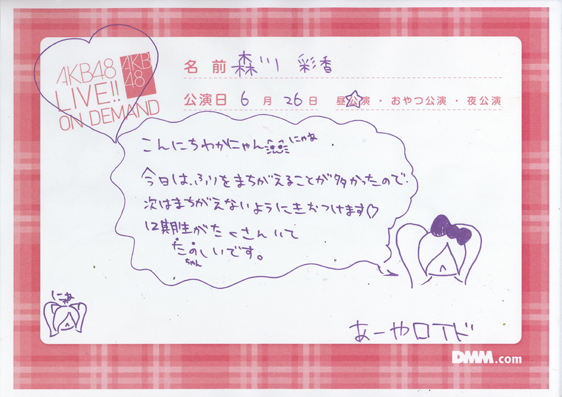 AKB48
LIVE!!
ON DEMAND
AKB
48
名前 森川 彩香
公演日 6月26日 昼公演・おやつ公演・夜公演
こんにちわがにゃん
にゃぉ
今日は、ふりをまちがえることが多かったので
次はまちがえないようにきおつけます♡
12期生がたくさんいて
たのしいです。
ちゃん
にゃぉ
あーやロイド
DMM.com